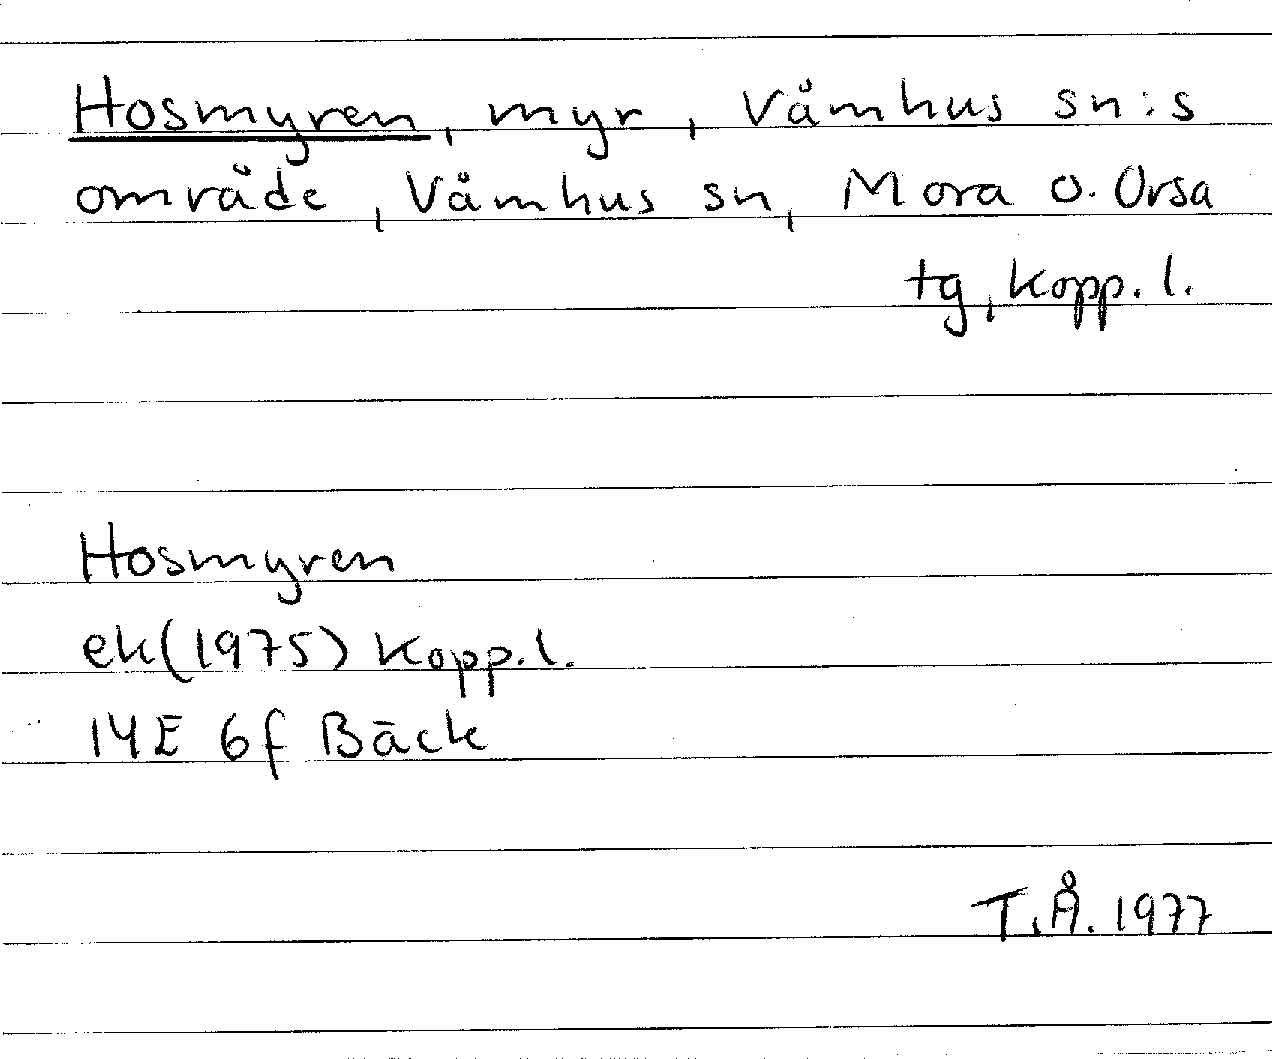 Hosmyren, myr, Våmhus sn:s
område, Våmhus sn, Mora o. Orsa
tg, Kopp. l.
Hosmyren
ek(1975) Kopp.l.
14E 6f Bäck
T.Å. 1977